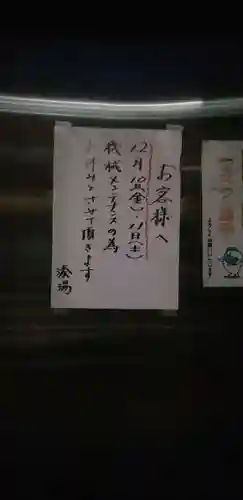 お客様へ
12月10日(金)・11日(土)
機械メンテナンスの為
お休みとさせて頂きます
湊湯